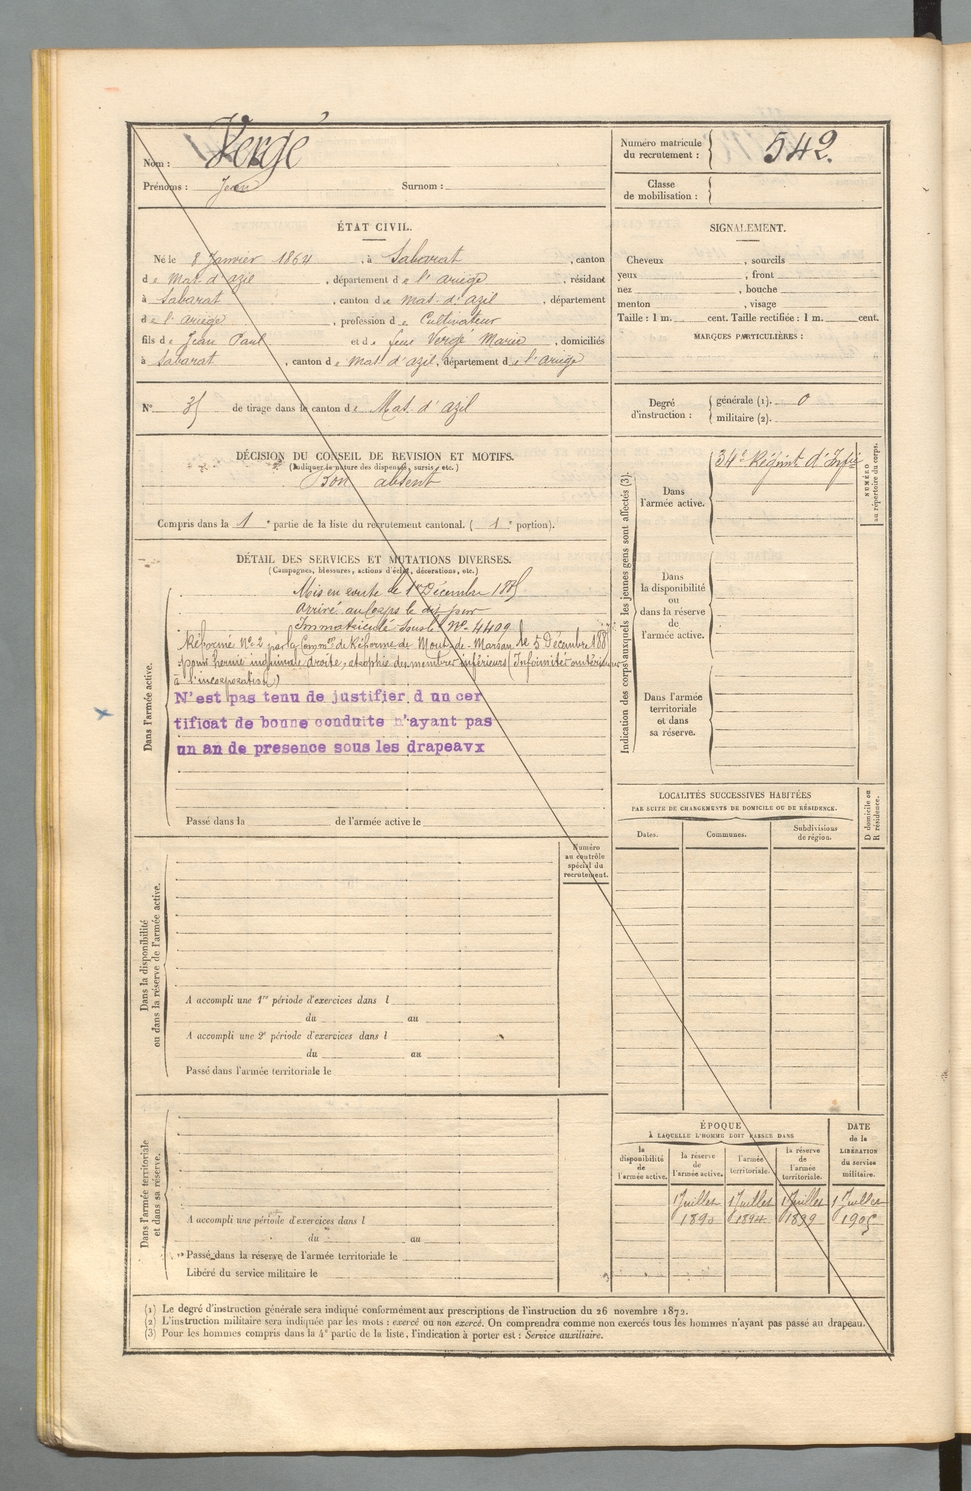 Nom : Vergé
Prénoms : Jean Surnom :
Numéro matricule
du recrutement : 542.
Classe
de mobilisation :
ÉTAT CIVIL.
Né le 8 Janvier 1864, à Sabarat, canton
de Mas d'azil, département de l'ariège, résidant
à Sabarat, canton de mas-d'azil, département
de l'ariège, profession de Cultivateur
fils de Jean Paul et de feue Vergé Marie, domiciliés
à Sabarat, canton de mas d'azil, département de l'ariège
SIGNALEMENT.
Cheveux , sourcils
yeux , front
nez , bouche
menton , visage
Taille : 1 m. cent. Taille rectifiée : 1 m. cent.
MARQUES PARTICULIÈRES :
N° 35 de tirage dans le canton de Mas-d'azil
Degré
d'instruction :
générale (1). 0
militaire (2).
DÉCISION DU CONSEIL DE REVISION ET MOTIFS.
(Indiquer la nature des dispenses, sursis, etc.)
Bon absent
Compris dans la 1e partie de la liste du recrutement cantonal. ( 1e portion).
DÉTAIL DES SERVICES ET MUTATIONS DIVERSES.
(Campagnes, blessures, actions d'éclat, décorations, etc.)
Dans l'armée active.
Mis en route le 1er Décembre 1885
arrivé au Corps le dit jour
Immatriculé sous le N° 4409
Réformé N° 2 par la Common de Réforme de Mont-de-Marsan le 5 Décembre 188
pour hernie inguinale droite, atrophie des membres inférieurs (Infirmités antérieures
à l'incorporation)
N'est pas tenu de justifier d un cer
tificat de bonne conduite n'ayant pas
un an de presence sous les drapeavx
Passé dans la de l'armée active le
Indication des corps auxquels les jeunes gens sont affectés (3).
Dans
l'armée active.
34e Régimt d'Infie
NUMÉRO
au répertoire du corps.
Dans
la disponibilité
ou
dans la réserve
de
l'armée active.
Dans l'armée
territoriale
et dans
sa réserve.
LOCALITÉS SUCCESSIVES HABITÉES
PAR SUITE DE CHANGEMENTS DE DOMICILE OU DE RÉSIDENCE.
Dates. Communes. Subdivisions
de région.
D domicile ou
R résidence.
Numéro
au contrôle
spécial du
recrutement.
Dans la disponibilité
ou dans la réserve de l'armée active.
A accompli une 1re période d'exercices dans l
du au
A accompli une 2e période d'exercices dans l
du au
Passé dans l'armée territoriale le
Dans l'armée territoriale
et dans sa réserve.
A accompli une période d'exercices dans l
du au
Passé dans la réserve de l'armée territoriale le
Libéré du service militaire le
ÉPOQUE
À LAQUELLE L'HOMME DOIT PASSER DANS
la
disponibilité
de
l'armée active.
la réserve
de
l'armée active.
l'armée
territoriale.
la réserve
de
l'armée
territoriale.
DATE
de la
LIBÉRATION
du service
militaire.
1 Juillet 1 Juillet 1 Juillet 1 Juillet
1890 1894 1899 1905
(1) Le degré d'instruction générale sera indiqué conformément aux prescriptions de l'instruction du 26 novembre 1872.
(2) L'instruction militaire sera indiquée par les mots : exercé ou non exercé. On comprendra comme non exercés tous les hommes n'ayant pas passé au drapeau.
(3) Pour les hommes compris dans la 4e partie de la liste, l'indication à porter est : Service auxiliaire.